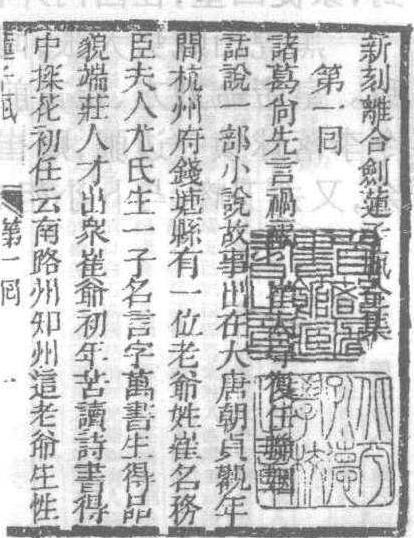 新刻離合劍蓮子瓶全集
第一囘
諸葛尙先言禍福 崔大守復任聯姻
話說一部小說故事出在大唐朝貞觀年
間杭州府錢塘縣有一位老爺姓崔名務
臣夫人尤氏生一子名言字萬書生得品
貌端莊人才出衆崔爺初年苦讀詩書得
中探花初任云南路州知州這老爺生性
蓮子瓶 第一囘 一